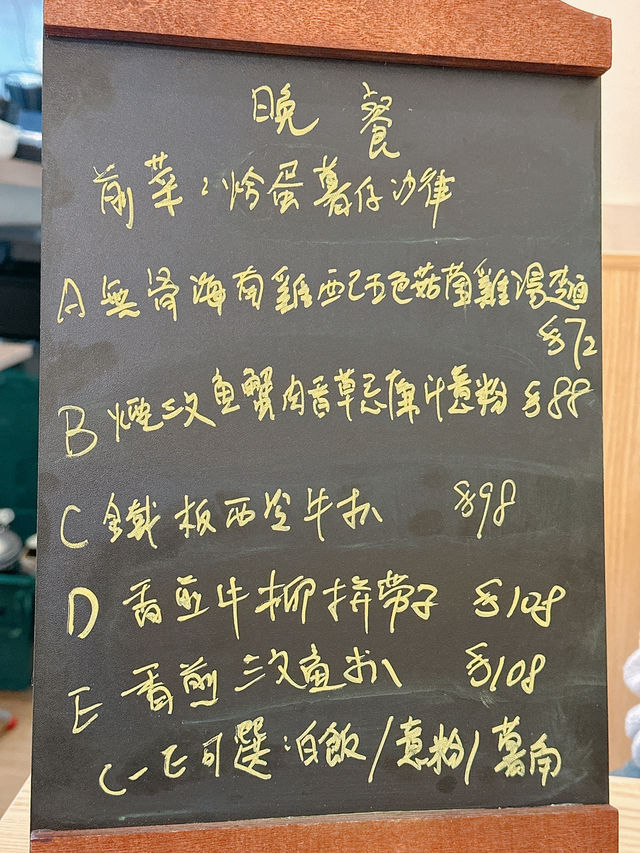 晚餐
前菜:焓蛋薯仔沙律
A 無骨海南雞配五色菇菌雞湯麵
$72
B 煙三文魚蟹肉香草忌廉汁意粉 $88
C 鐵板西冷牛扒 $98
D 香煎牛柳拼帶子 $128
E 香煎三文魚扒 $108
C-E可選:白飯/意粉/薯角